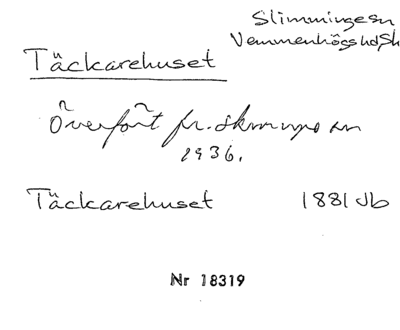 Slimminge sn
Vemmenhögs hd Sk
Täckarehuset
Överfört fr. Skurups sn
1936.
Täckarehuset 1881 Jb
Nr 18319